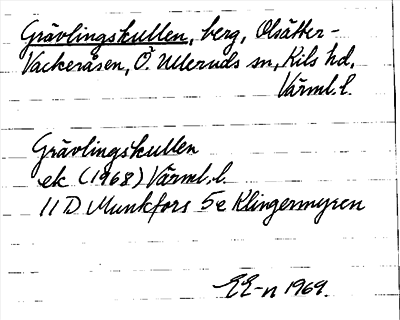 Grävlingskullen, berg, Olsätter-
Vackeråsen, Ö. Ulleruds sn, Kils hd,
Värml. l.
Grävlingskullen
ek (1968) Värml. l.
11 D Munkfors 5e Klingermyren
EE-n 1969.